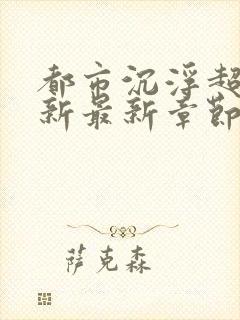 都市沉浮超
新最新章節
萨克森